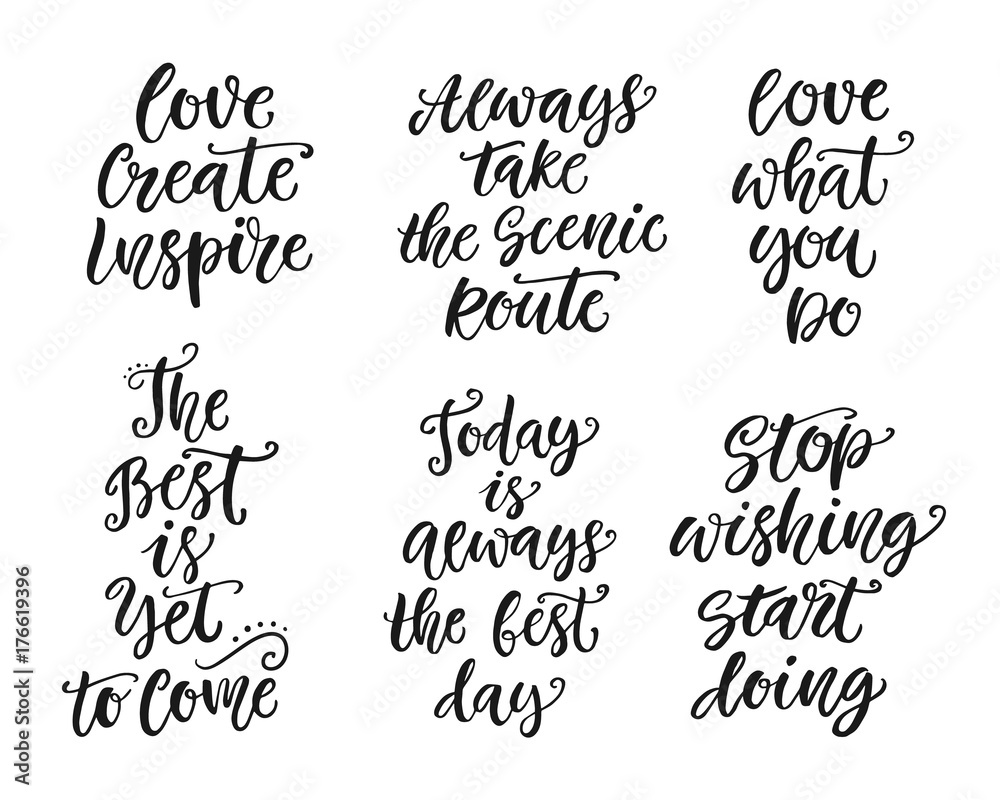 Love
Create
Inspire
Always
take
the Scenic
Route
love
what
you
Do
The
Best
is
Yet
to Come
Today
is
always
the best
day
Stop
wishing
start
doing
Adobe Stock | #176619396